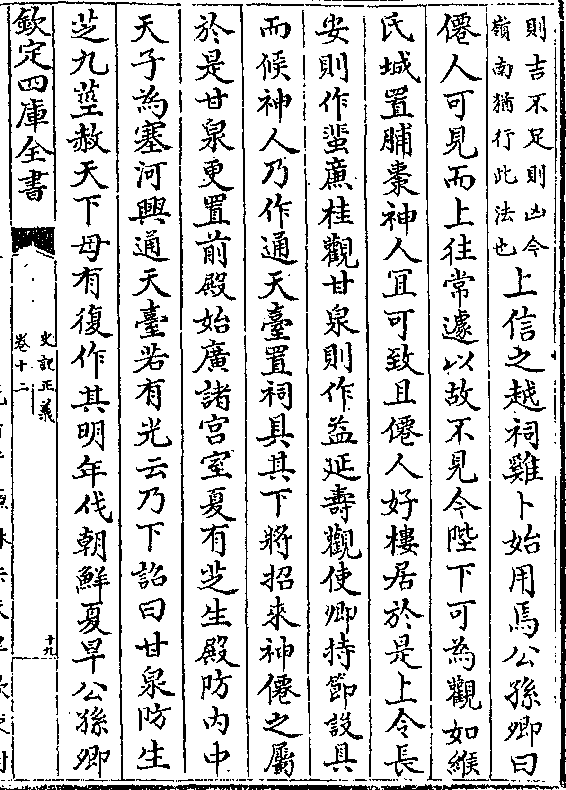 則吉不足則凶今
嶺南猶行此法也
上信之越祠雞卜始用焉公孫卿曰
僊人可見而上往常遽以故不見今陛下可為觀如緱
氏城置脯棗神人宜可致且僊人好樓居於是上令長
安則作蜚廉桂觀甘泉則作益延壽觀使卿持節設具
而候神人乃作通天臺置祠具其下將招來神僊之屬
於是甘泉更置前殿始廣諸宮室夏有芝生殿防内中
天子為塞河興通天臺若有光云乃下詔曰甘泉防生
芝九莖赦天下毋有復作其明年伐朝鮮夏旱公孫卿
欽定四庫全書
史記正義
卷十二
十九